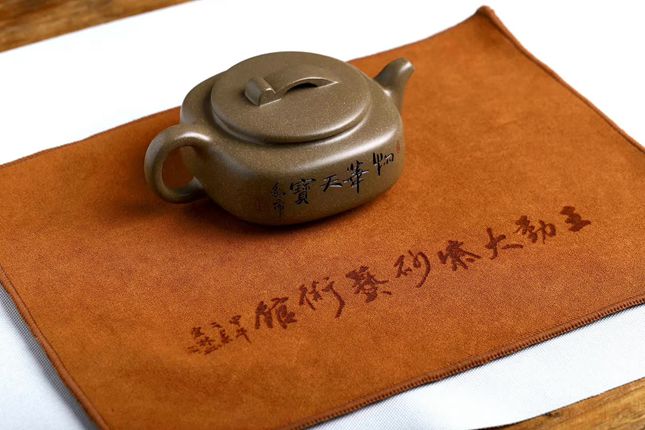 物華天寶
王大紫砂藝術館